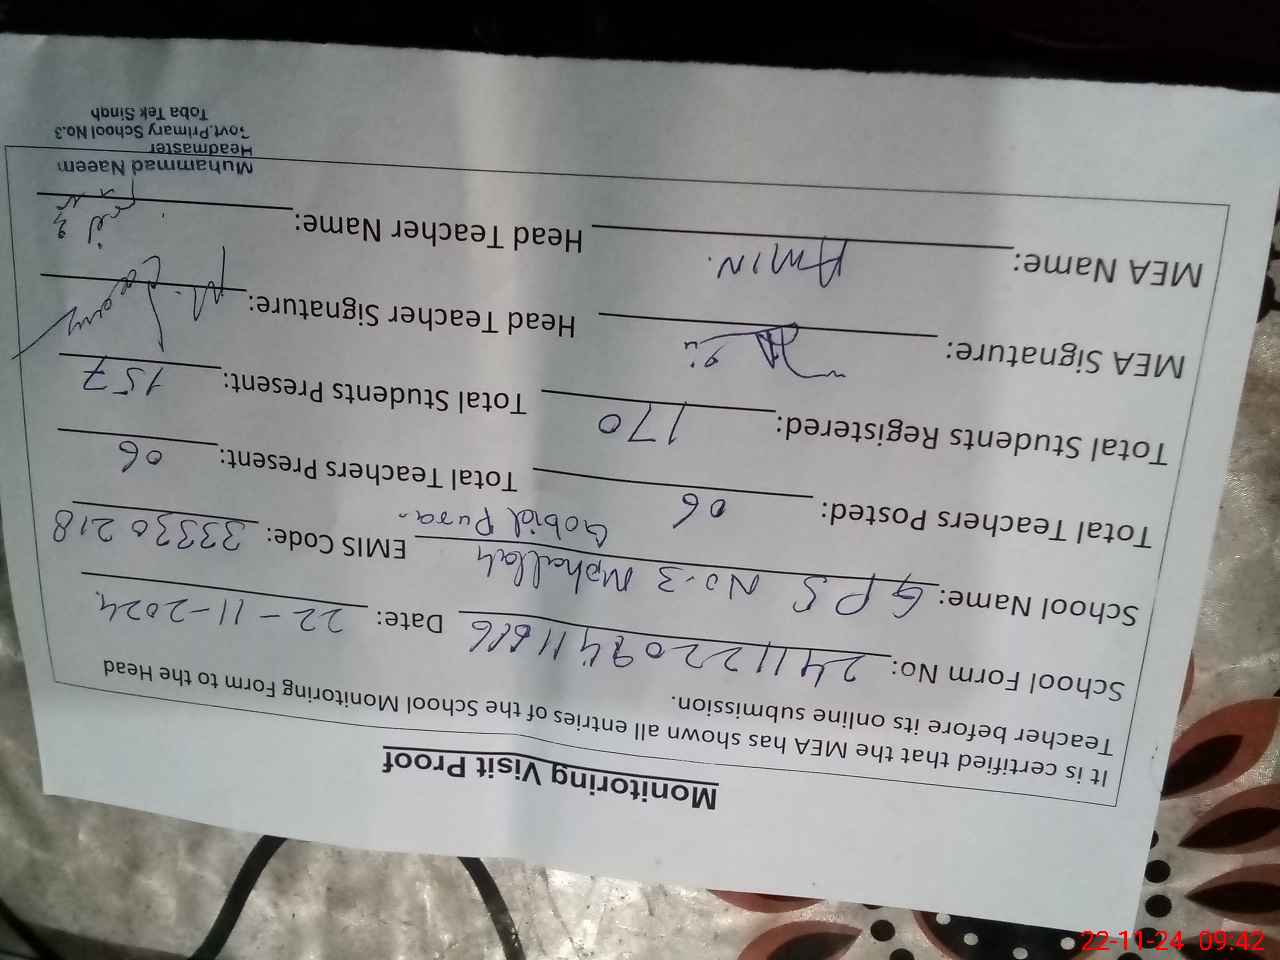 Monitoring Visit Proof
It is certified that the MEA has shown all entries of the School Monitoring Form to the Head
Teacher before its online submission.
School Form No: 24112209411616 Date: 22-11-2024
School Name: GPS No.3 Mohallah Gobid Pura. EMIS Code: 33330218
Total Teachers Posted: 06 Total Teachers Present: 06
Total Students Registered: 170 Total Students Present: 157
MEA Signature: Head Teacher Signature:
MEA Name: AMIN. Head Teacher Name:
Muhammad Naeem
Headmaster
Govt.Primary School No.3
Toba Tek Singh
22-11-24 09:42